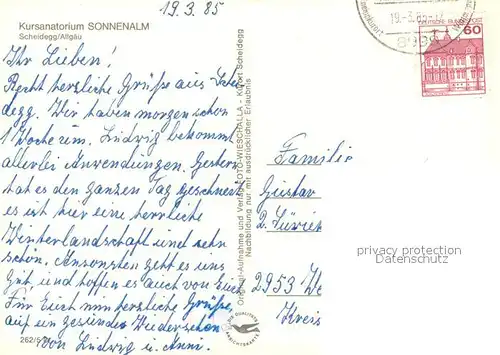 19.3.85
Kursanatorium SONNENALM
Scheidegg/Allgäu
Ihr Lieben!
Recht herzliche Grüße aus Scheid
egg. Wir haben morgen schon
1 Woche um. Ludwig bekommt
allerlei Anwendungen. Gestern
hat es den ganzen Tag geschneit
es ist hier eine herrliche
Winterlandschaft und sehr
schön. Ansonsten geht es uns
gut, und hoffen es auch von Euch
Für Euch nun herzliche Grüße,
auf ein gesundes Wiedersehen
von Ludwig u. Anni.
262/5
Original-Aufnahme und Verlag FOTO-WIESCHALLA - Kurort Scheidegg
Nachbildung nur mit ausdrücklicher Erlaubnis
QUALITÄTS
ANSICHTSKARTE
19.-3.85-17
8999
DEUTSCHE BUNDESPOST
60
Familie
Gustav
2953
Kreis
privacy protection
Datenschutz